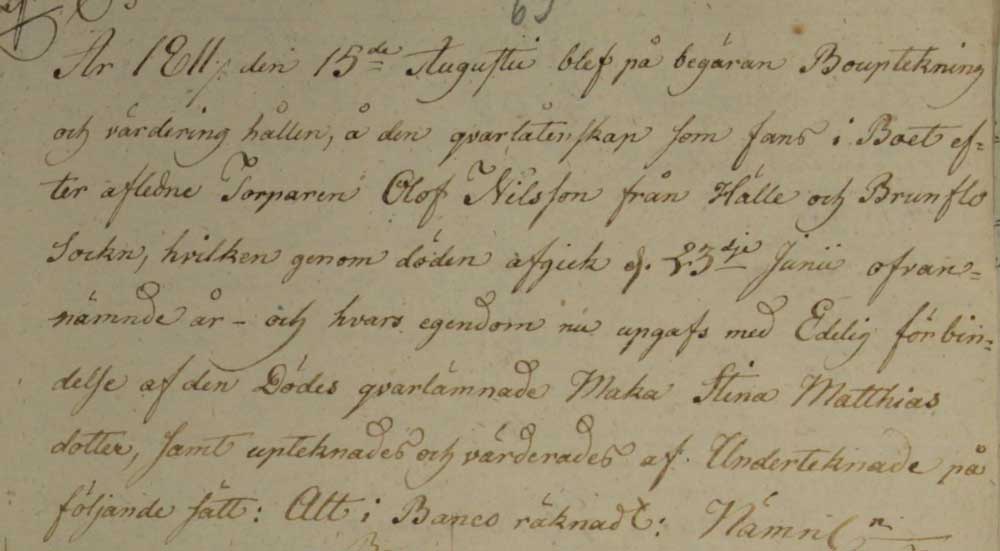 65
År 1811, den 15de Augustii blef på begäran Bouptekning
och värdering hållen, å den qvarlåtenskap som fans i Boet ef=
ter afledne Torparen Olof Nilsson från Hälle och Brunflo
Sockn, hvilken genom döden afgick d. 23dje Junii ofvan=
nämnde år - och hvars egendom nu upgafs med Edelig förbin=
delse af den Dödes qvarlämnade Maka Stina Matthias
dotter, samt upteknades och värderades af Underteknade på
följande sätt: Alt i Banco räknadt: Nämnl:n